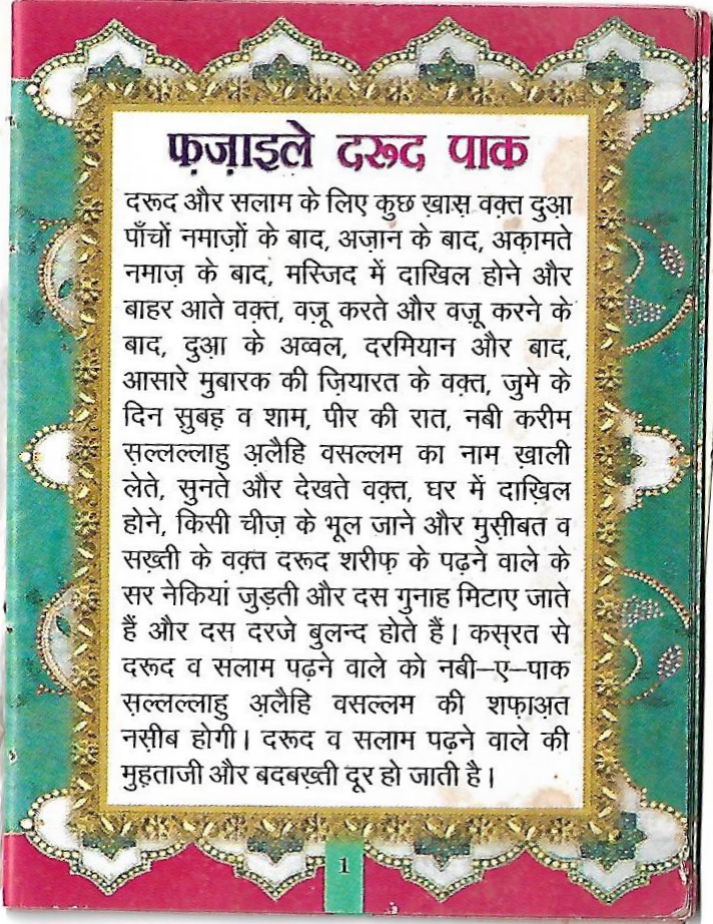 फ़ज़ाइले दरूद पाक
दरूद और सलाम के लिए कुछ ख़ास वक़्त दुआ
पाँचों नमाज़ों के बाद, अज़ान के बाद, अक़ामते
नमाज़ के बाद, मस्जिद में दाखिल होने और
बाहर आते वक़्त, वज़ू करते और वज़ू करने के
बाद, दुआ के अव्वल, दरमियान और बाद,
आसारे मुबारक की ज़ियारत के वक़्त, जुमे के
दिन सुबह़ व शाम, पीर की रात, नबी करीम
स़ल्लल्लाहु अ़लैहि वसल्लम का नाम ख़ाली
लेते, सुनते और देखते वक़्त, घर में दाखिल
होने, किसी चीज़ के भूल जाने और मुस़ीबत व
सख़्ती के वक़्त दरूद शरीफ़ के पढ़ने वाले के
सर नेकियां जुड़ती और दस गुनाह मिटाए जाते
हैं और दस दरजे बुलन्द होते हैं। कस़रत से
दरूद व सलाम पढ़ने वाले को नबी–ए–पाक
स़ल्लल्लाहु अ़लैहि वसल्लम की शफ़ाअ़त
नस़ीब होगी। दरूद व सलाम पढ़ने वाले की
मुह़ताजी और बदबख़्ती दूर हो जाती है।
1